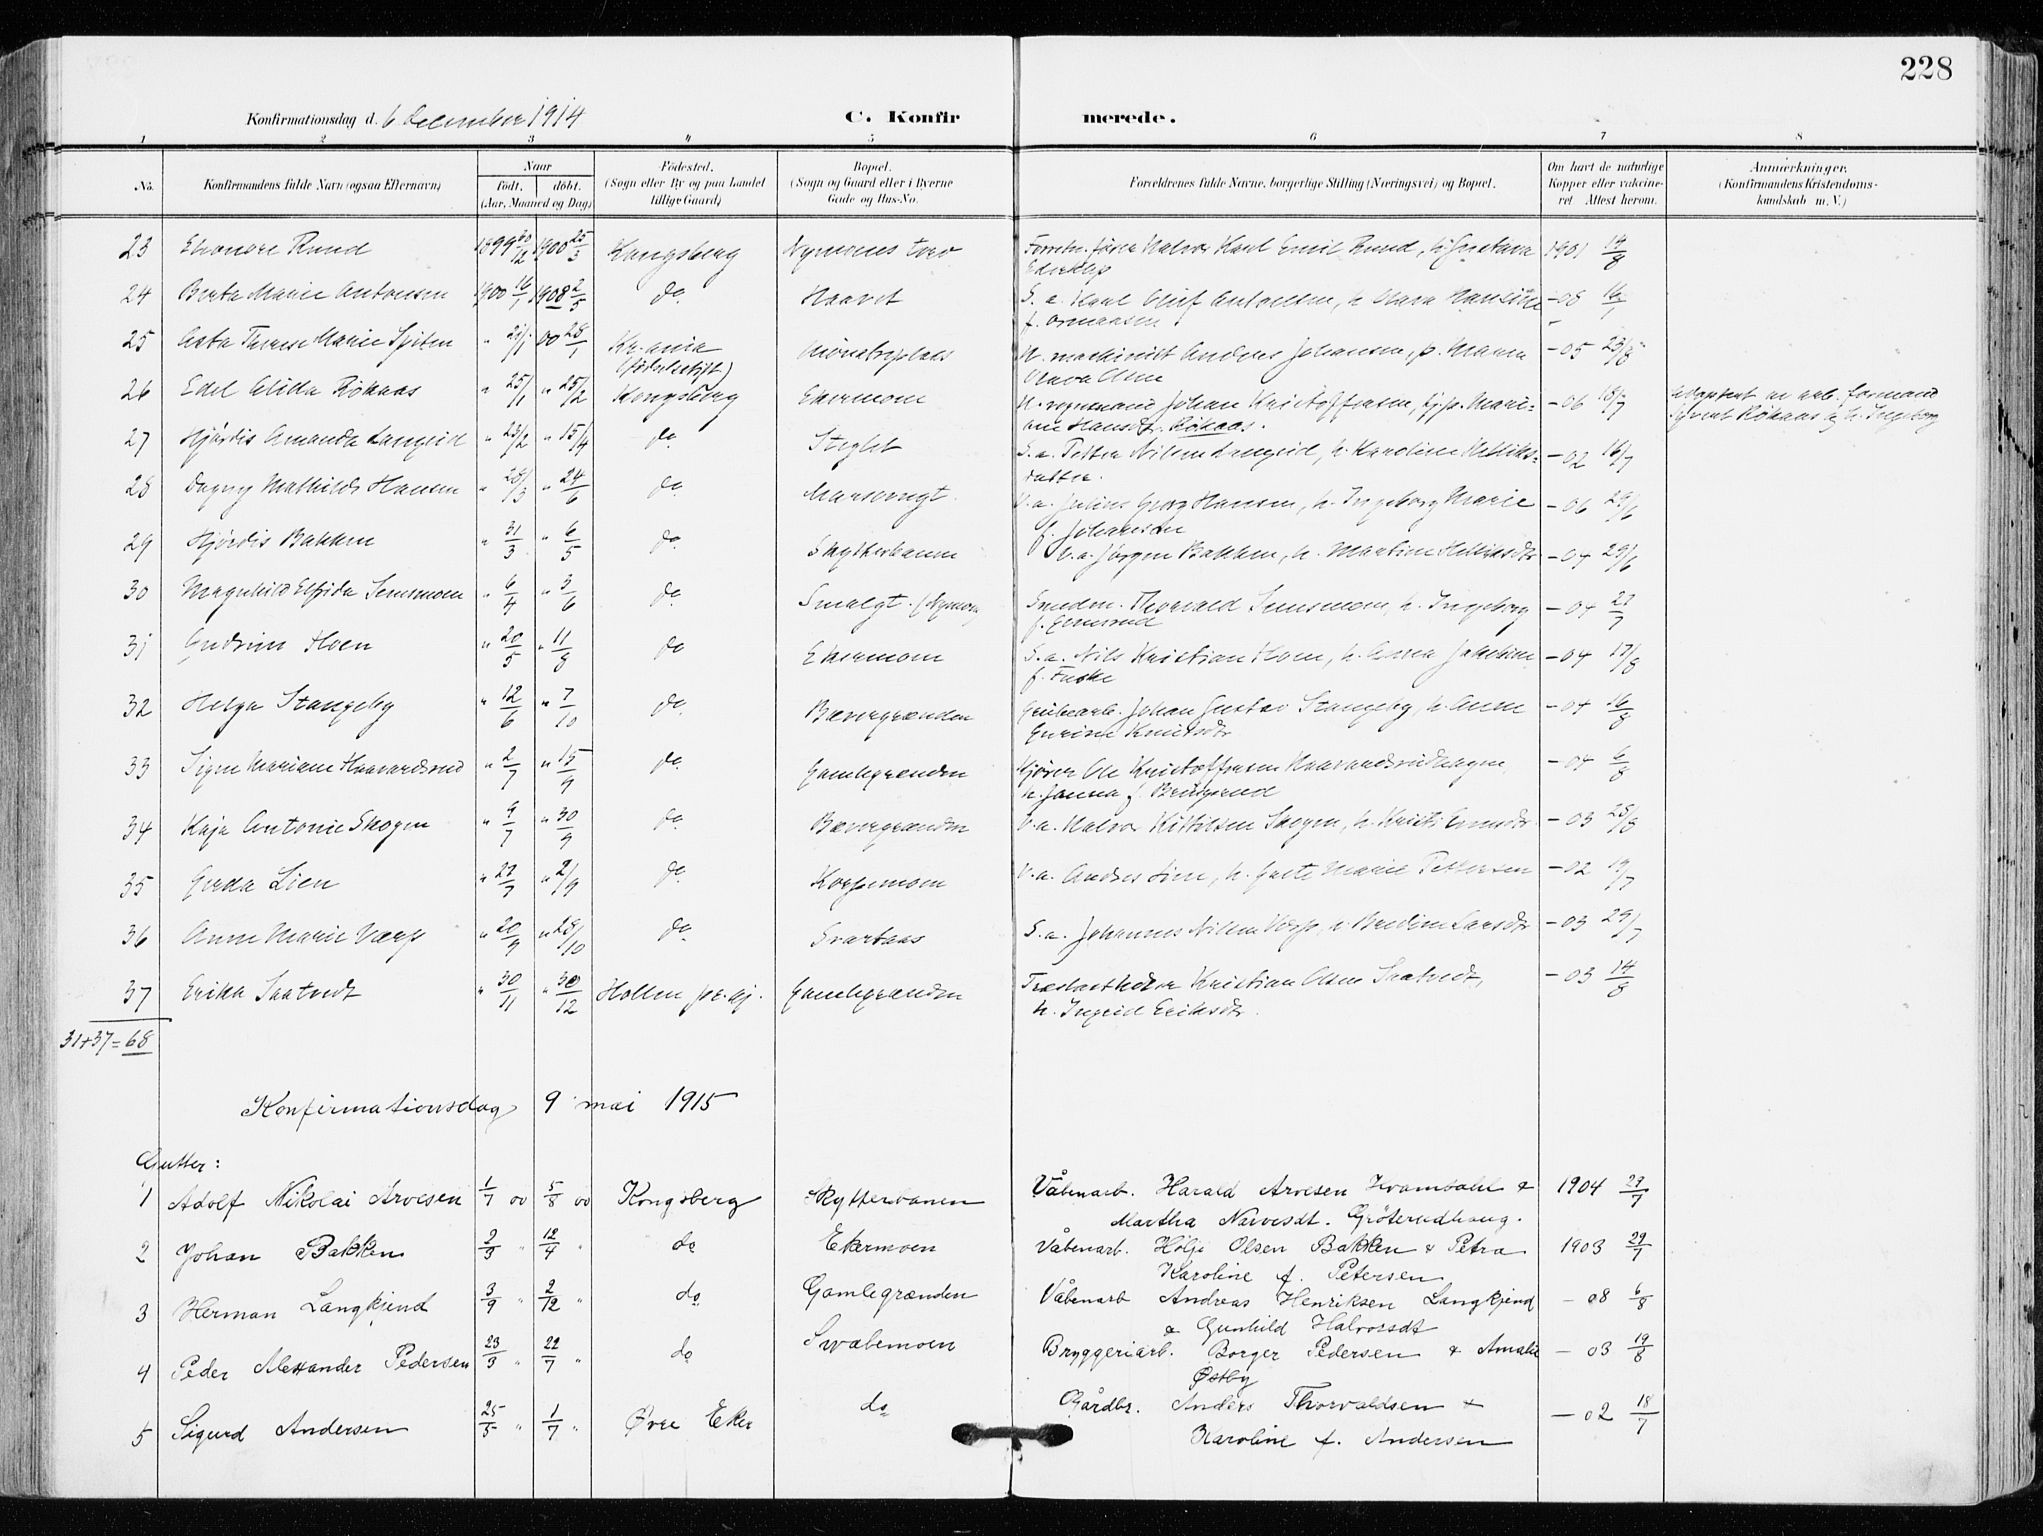 228
Konfirmationsdag d. 6 december 1914 C. Konfirmerede.
1 2 3 4 5 6 7 8
No. Konfirmandens fulde Navn (ogsaa Efternavn) Naar født, døbt. (Aar, Maaned og Dag) Fødested. (Sogn eller By og paa Landet tillige Gaard) Bopæl. (Sogn og Gaard eller i Byerne Gade og Hus-No. Forældrenes fulde Navne, borgerlige Stilling (Næringsvei) og Bopæl. Om havt de naturlige Kopper eller vakcineret. Attest herom. Anmærkninger. (Konfirmandens Kristendomskundskab m. V.)
23 Eleonore Ruud 1899 30/12 1900 25/3 Kongsberg Nymoens torv Halvor Karl Emil Ruud, h. Gustava 1901 14/8
24 Berta Marie Antonsen 1900 16/1 1908 2/5 do Haavet S. a. Karl Oluf Antonsen, h. -08 16/1
25 Asta Therese Marie Spiten " 21/1 00 28/1 Kr.ania (fødselsstift) M. machinist Anders Johansen, p. Maria -05 23/8
26 Edel Alida Røkaas " 25/1 " 25/2 Kongsberg Ekermoen Johan Kristoffersen, Mariane Hansdtr. Røkaas. -06 18/7 Adoptert av arb. formand Røkaas og h. Ingeborg
27 Hjørdis Amanda Langeid " 23/2 " 15/4 do Stiglet S. a. Petter Nilsen Langeid, h. Karoline -02 16/7
28 Dagny Mathilde Hansen " 28/3 " 24/6 do V. a. Julius Georg Hansen, h. Ingeborg Marie f. Johansen -06 29/6
29 Hjørdis Bakken " 31/3 " 6/5 do Skytterbanen V. a. Jørgen Bakken, h. Martine -04 29/6
30 Magnhild Elfrida Semsmoen " 6/4 " 3/6 do Smalgt. (Nymoen) Smedm. Thorvald Semsmoen, h. Ingeborg -04 21/7
31 Gudrun Hoen " 20/5 " 11/8 do Ekermoen S. a. Nils Kristian Hoen, h. Anna -04 17/8
32 Helga Stangeby " 12/6 " 7/10 do Bævergrænden Grubearb. Johan Gustav Stangeby, h. Anne Gurine Knutsdtr -04 16/8
33 Signe Mariane Haavardsrud " 2/7 " 15/9 do Gamlegrænden Kjører Ole Kristoffersen Haavardsrudhagen, h. Janna f. -04 6/8
34 Kaja Antonie Skogen " 9/7 " 30/9 do Bævergrænden V. a. Halvor Kittilsen Skogen, h. -03 25/8
35 Gerda Lien " 22/7 " 2/9 do Korpemoen V. a. Andres Lien, h. Grete Marie Pettersen -02 19/7
36 Anne Marie Værp " 20/9 " 28/10 do Svartaas S. a. Johannes Nilsen Værp, h. Bredine Larsdtr -03 29/7
37 Erika Saatvedt " 30/11 " 30/12 Hollen pr. gj. Gamlegrænden Kristian Olsen Saatvedt, h. Ingrid Eriksdtr. -03 14/8
31+37=68
Konfirmationsdag 9 mai 1915
Gutter:
1 Adolf Nikolai Arvesen 1/7 00 5/8 00 Kongsberg Skytterbanen Våbenarb. Harald Arvesen Kvambahl & Martha Narvesdt. Grøterudhaug. 1904 27/7
2 Johan Bakken 2/3 " 12/4 " do Ekermoen Våbenarb. Holje Olsen Bakken & Petra Karoline f. Petersen 1903 29/7
3 Herman Langkjend 3/9 " 2/12 " do Gamlegrænden Våbenarb Andreas Henriksen Langkjend & Gunhild Halvorsdt -08 6/8
4 Peder Alexander Pedersen 23/3 " 22/7 " do Svabemoen Bryggeriarb. Borger Pedersen & Amalie Østby -03 19/8
5 Sigurd Andersen 25/5 " 1/7 " Øvre Eker do Gårdbr. Anders Thorvaldsen & Karoline f. Andersen -02 18/7